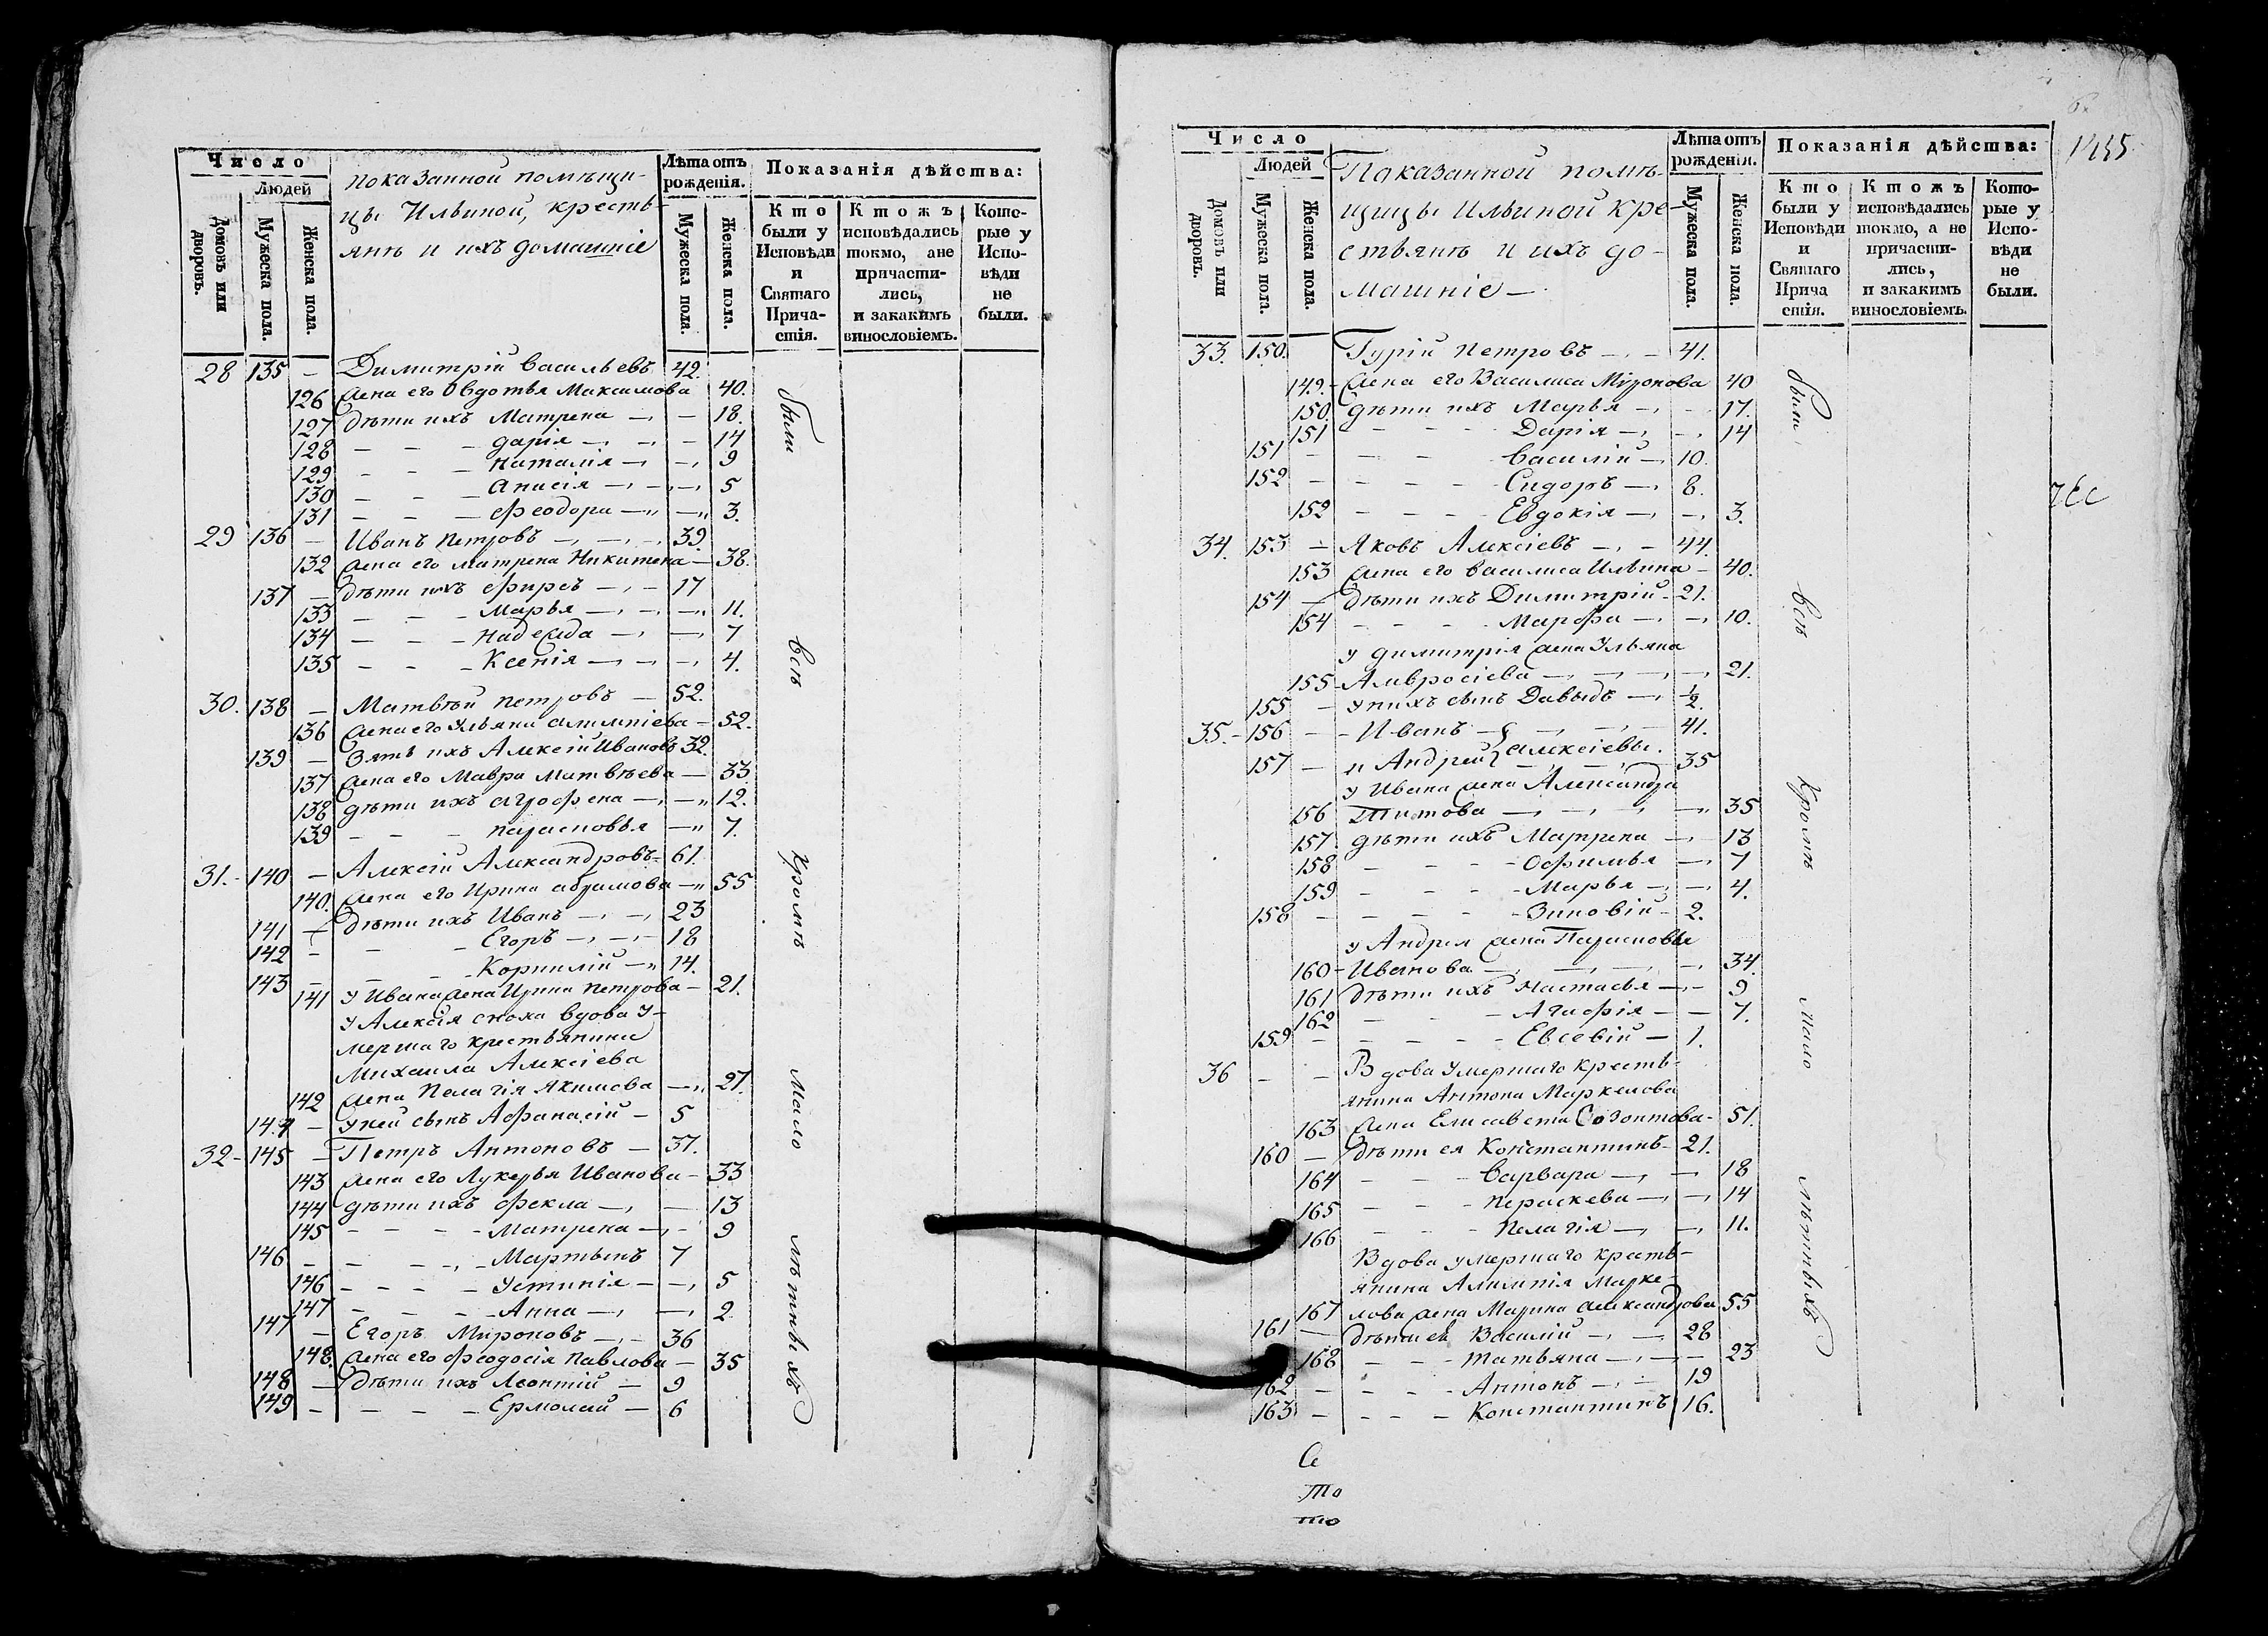 Число
Людей
Домовъ или дворовъ.
Мужеска пола.
Женска пола.
показанной помѣщи-
цы Ильиной, кресть-
янъ и ихъ домашніе
Лѣта отъ рожденія.
Мужеска пола.
Женска пола.
Показанія дѣйства:
Кто были у Исповѣди и Святаго Прича-стія.
Ктожъ исповѣдались токмо, ане причасти-лись, и закакимъ винословіемъ.
Кото-рые у Испо-вѣди не были.
28 135 – Димитрій Васильевъ 42.
126 жена его Овдотья Максимова 40.
127 дѣти ихъ Матрена – – 18.
128 – – – дарія – – – 14
129 – – – Наталія – – 9
130 – – – Анисія – – – 5
131 – – – Феодора – – 3.
29 136 – Иванъ Петровъ – – – 39
132 жена его матрена Никитена – 38.
137 – дѣти ихъ Фирсъ – – 17
133 – – – Марья – – – 11.
134 – – – Надежда – – 7
135 – – – Ксенія – – – 4.
30. 138 – Матвѣй петровъ – 52.
136 жена его Ульяна алимпіева – 52.
139 – Зять ихъ Алексій Ивановъ 32.
137 жена его Мавра Матвѣева – 33
138 дѣти ихъ агрофена – – 12.
139 – – – парасковья – 7.
31. – 140 – Алексій Александровъ – 61.
140. жена его Ирина абрамова – 55
141 – дѣти ихъ Иванъ – – 23
142 – – – Егоръ – – – 18
143 – – – Корнилій – 14.
141 у Ивана жена Ирина петрова – 21.
У Алексія сноха вдова у-
мершаго крестьянина
Михаила Алексіева
142 жена Пелагія Якимова – 27.
144 – у ней сынъ Афанасій – 5
32 – 145 – Петръ Антоновъ – 37.
143 жена его Лукерья Иванова – 33
144 дѣти ихъ Фекла – – 13
145 – – – – Матрена – – 9
146 – – – – Мартынъ 7
146 – – – – Устинія – – 5
147 – – – – Анна – – 2
147 – Егоръ Мироновъ – – 36
148. жена его Феодосія Павлова – 35
148 – дѣти ихъ Леонтій – 9
149 – – – – Ермолай – 6
были
всѣ
Кромѣ
Мало
лѣтныхъ
1455
Число
Людей
Домовъ или дворовъ.
Мужеска пола.
Женска пола.
Показанной помѣ-
щицы Ильиной кре-
стьянъ и ихъ до-
машніе –
Лѣта отъ рожденія.
Мужеска пола.
Женска пола.
Показанія дѣйства:
Кто были у Исповѣди и Святаго Прича стія.
Ктожъ исповѣдались токмо, а не причасти-лись, и закакимъ винословіемъ.
Кото-рые у Испо-вѣди не были.
33. 150. Гурій Петровъ – – 41.
149. – жена его Василиса Миронова 40
150. дѣти ихъ Марья – – 17.
151 – – – Дарія – – 14
151 – – – – Василій – 10.
152 – – – – Сидоръ – 8.
152 – – – – Евдокія – – 3.
34. 153 – Яковъ Алексіевъ – – 44.
153 жена его василиса Ильина – 40.
154 – дѣти ихъ Димитрій – 21.
154 – – – – Марфа – – 10.
у димитрія жена Ульяна
155 – Амвросіева – – – – 21.
155 – у нихъ сынъ Давыдъ – ½.
35. – 156 – – Иванъ – – – 41.
157 – и Андрей Алексіевы. 35
у Ивана жена Александра
156 Титова – – – – 35
157. дѣти ихъ Матрена – – 13
158 – – – Офимья – 7
159 – – – – Марья – – 4.
158 – – – – – Зиновій – 2.
у Андрея жена Парасковья
160 – Иванова – – – – 34.
161 дѣти ихъ Настасья – – 9
162 – – – Агафія – – 7.
159 – – – – – Евсевій – 1.
36 – – Вдова умершаго кресть-
янина Антона Маркелова
163 жена Елисавета Созонтова – 51.
160 – дѣти ея Константинъ – 21.
164 – – – Варвара – – 18
165 – – – Пераскева – – 14
166 – – – Пелагія – – 11.
Вдова умершаго кресть-
янина Алимпія Марке-
167 лова жена Марина александрова 55
161 – дѣти ея Василій – – 28
168 – – – Татьяна – – – 23
162 – – – – Антонъ – – 19
163 – – – – Константинъ 16.
были
всѣ
Кромѣ
Мало
лѣтныхъ
Се
То
то